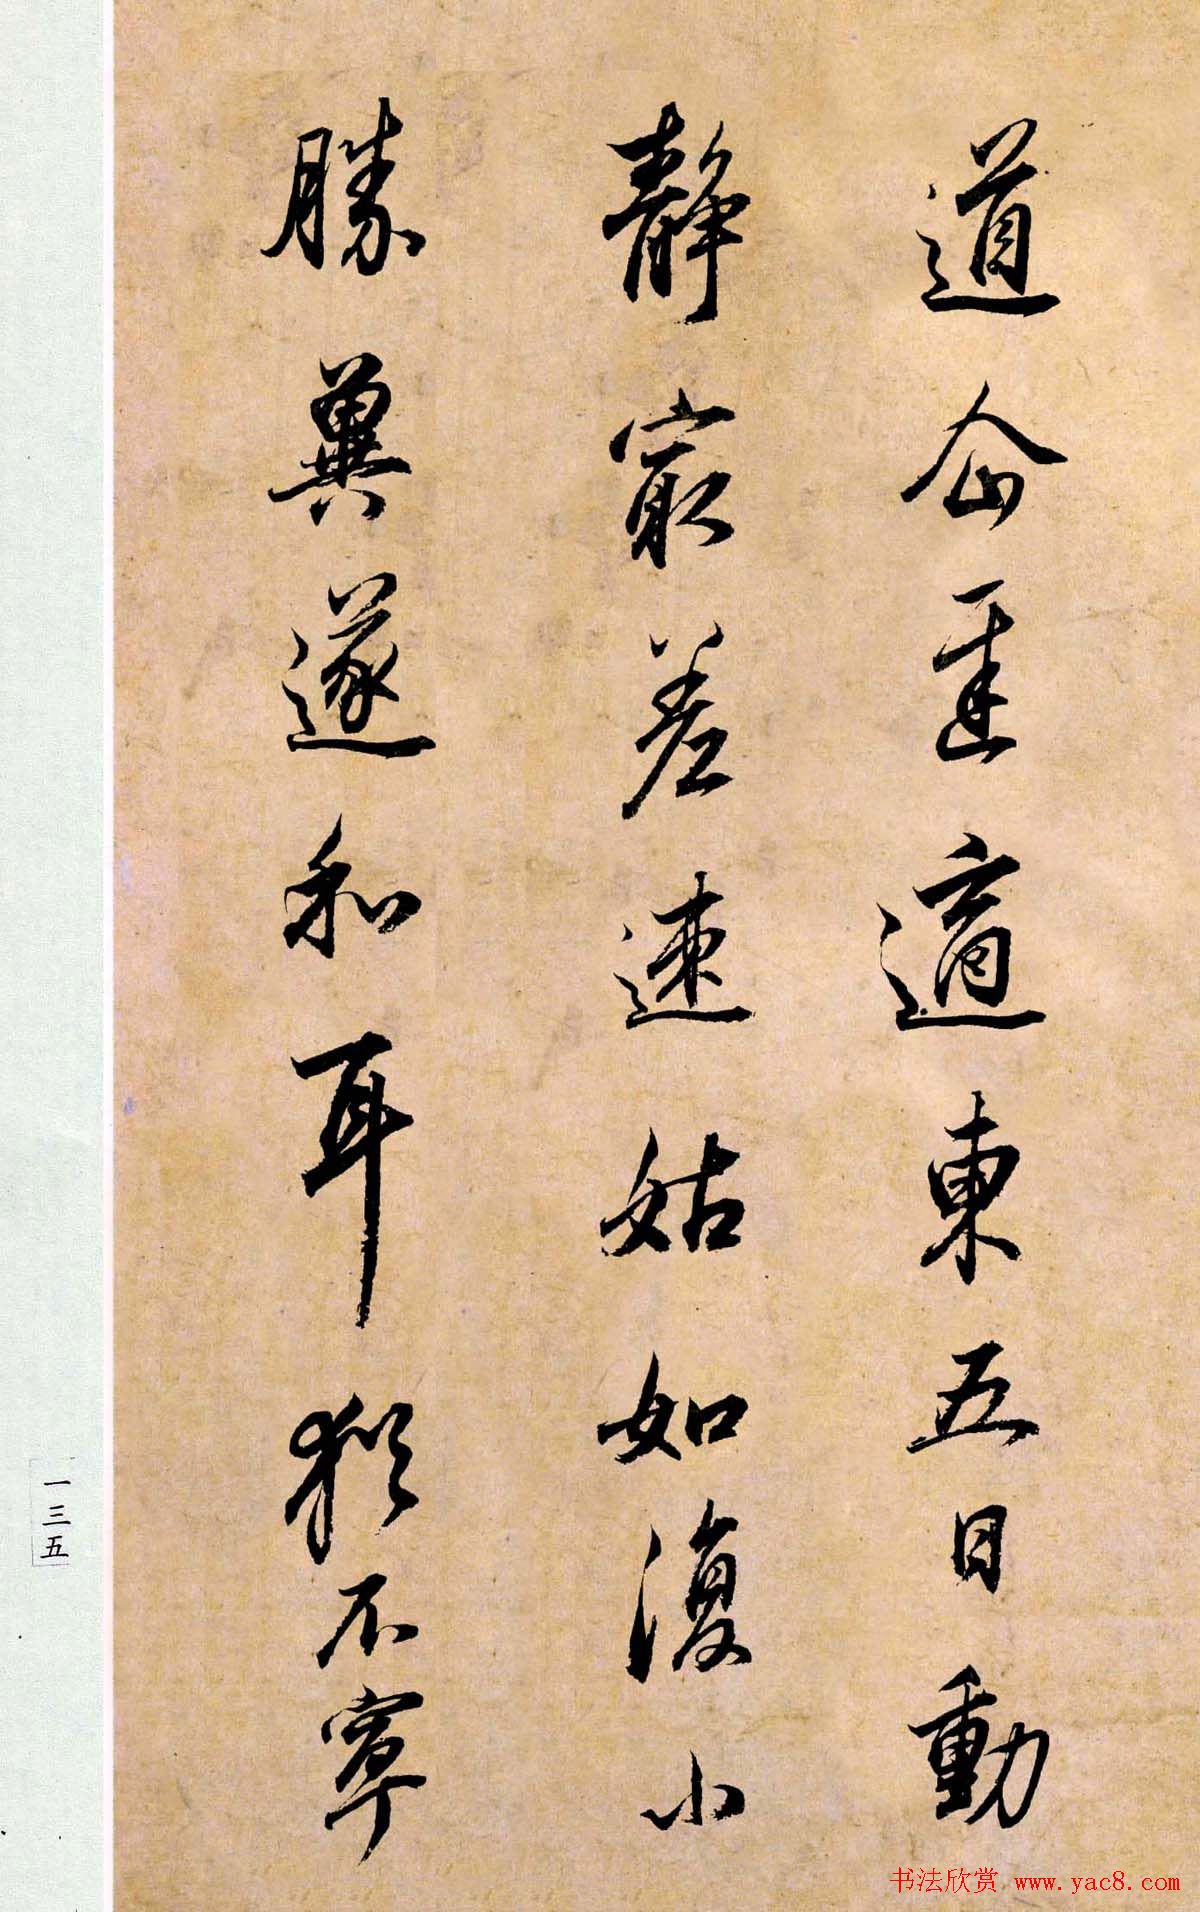 道企遲適東五日動
靜寂差速姑如復小
勝冀遂和耳猶不寧
一三五
书法欣赏 www.yac8.com